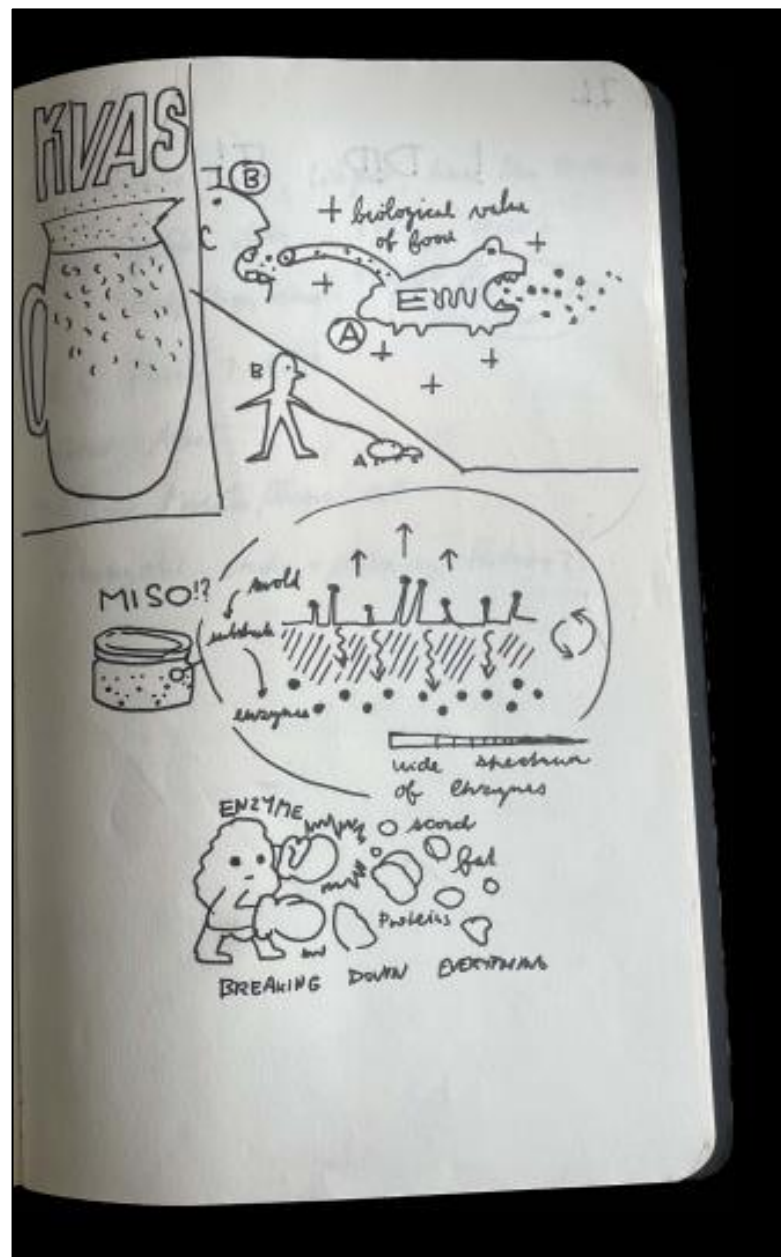 KVAS
B
+ biological value
of food
A
B
A
MISO!?
mold
substrate
enzymes
wide spectrum
of enzymes
ENZYME
fat
Proteins
BREAKING DOWN EVERYTHING